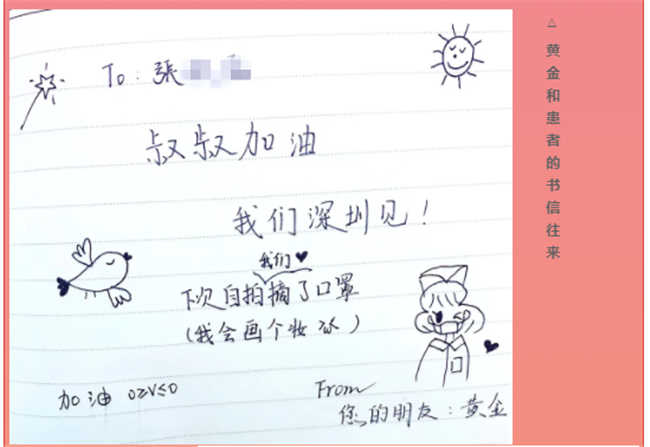 To: 張
叔叔加油
我们深圳见！
我们
下次自拍摘了口罩
(我会画个妆 )
加油 o≥v≤o
From
您的朋友：黄金
△黄金和患者的书信往来